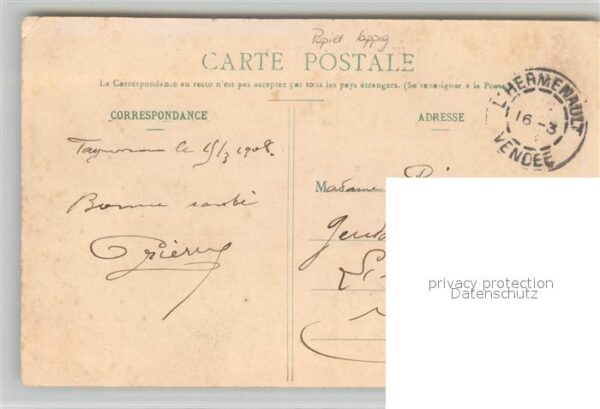 Papier lappig
CARTE POSTALE
La Correspondance au recto n'est pas acceptée par tous les pays étrangers. (Se renseigner à la Poste
CORRESPONDANCE
ADRESSE
L'HERMENAULT
16-3
VENDÉE
le 15/3 1908.
Madame
Bonne santé
privacy protection
Datenschutz